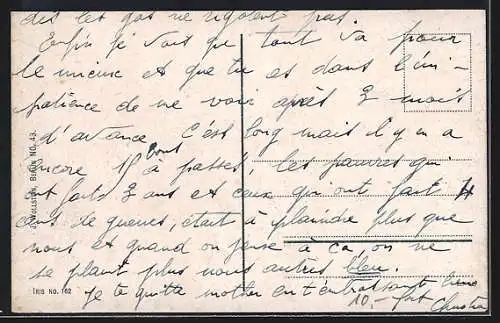 dis les gas ne rigolent pas.
Enfin je vois que tout va pour
le mieux et que tu es dans l'im-
patience de me voir après 3 mois
d'avance. C'est long mais il y en a
encore 18 à passer, les pauvres qui
ont fait 3 ans et ceux qui ont fait 4
ans de guerres, était à plaindre plus que
nous et quand on pense à ça, on ne
se plaint plus nous autres bleu.
Je te quitte en t'embrassant bien
fort
10.-
J. WOLLSTEIN, BERLIN NO. 43.
IRIS NO. 162